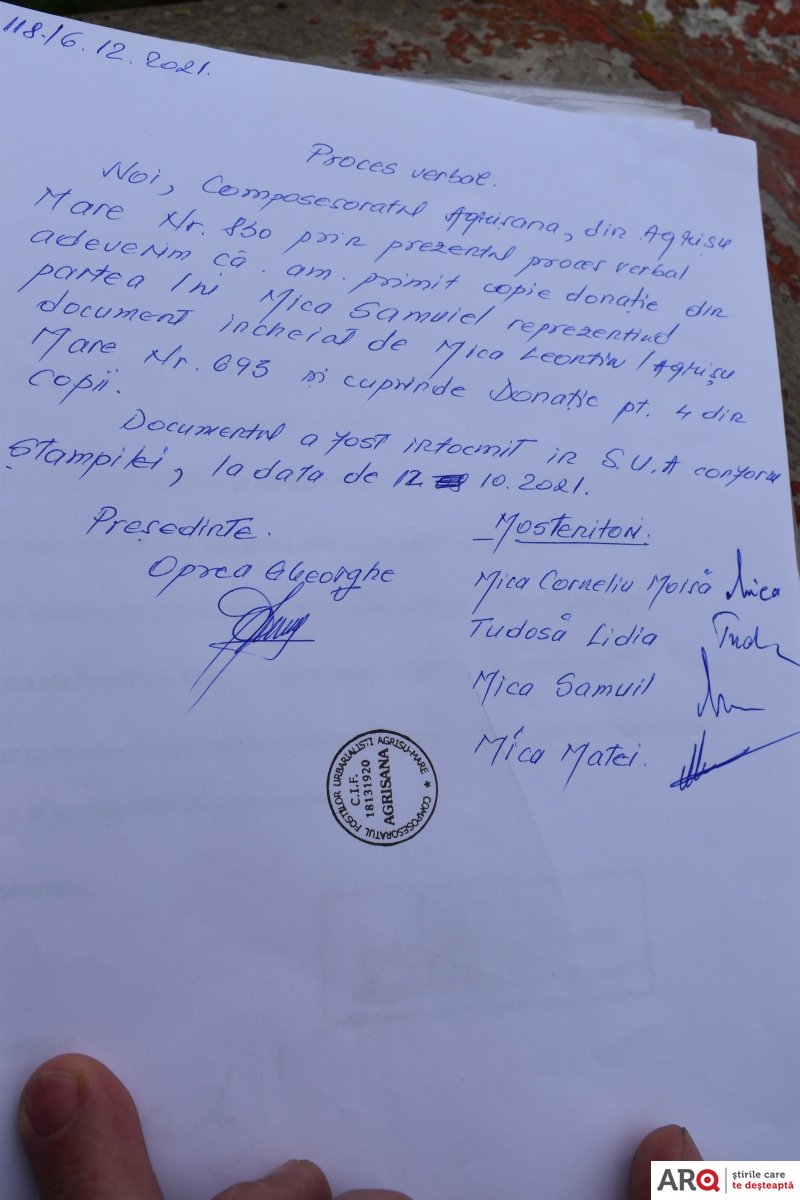 118./6.12.2021.
Proces verbal.
Noi, Composesoratul Agrisana, din Agrișu
Mare Nr. 830 prin prezentul proces verbal
adeverim că am primit copie donație din
partea lui Mica Samuiel reprezentînd
document incheiat de Mica Leontin / Agrișu
Mare Nr. 693 și cuprinde Donație pt. 4 din
copii.
Documentul a fost intocmit in S.U.A conform
ștampilei, la data de 12 10.2021.
Președinte.
Oprea Gheorghe
Mostenitori.
Mica Corneliu Moisă Mica
Tudosă Lidia Tud
Mica Samuil
Mica Matei.
COMPOSESORATUL FOSTILOR URBARIALISTI AGRISU-MARE *
C.I.F.
18131920
AGRISANA
ARQ
știrile care
te deșteaptă